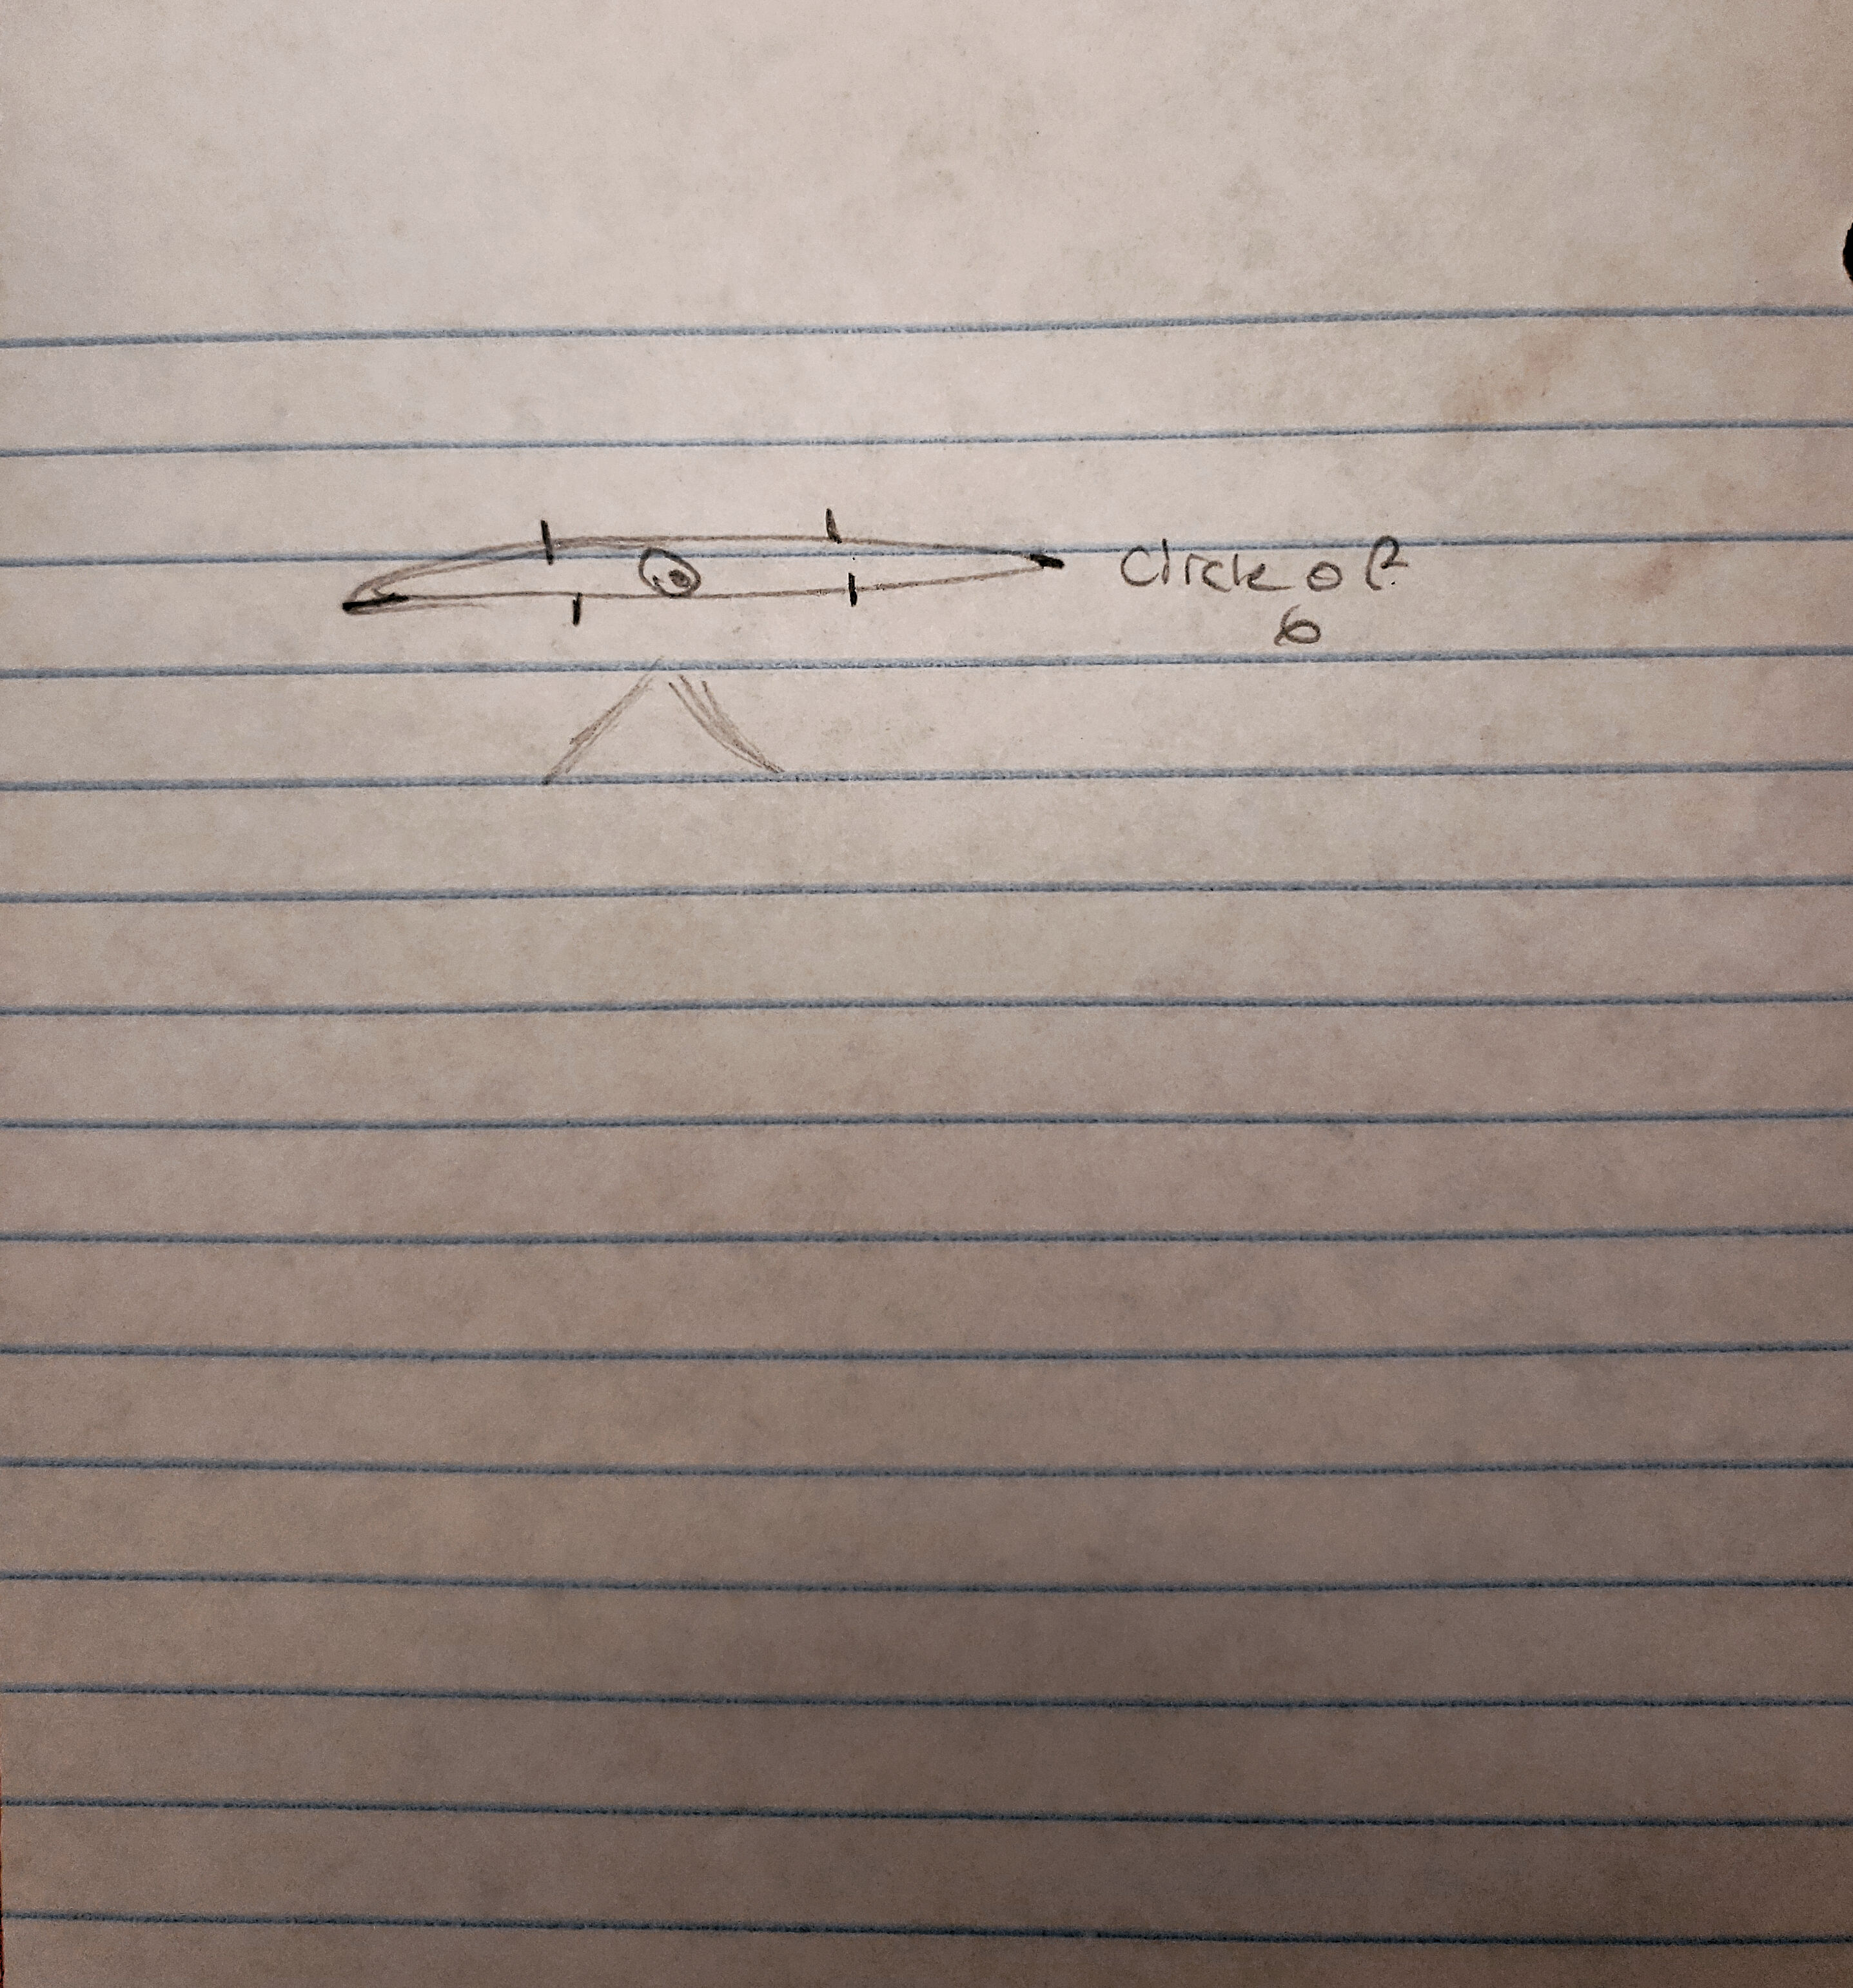 Circle of
6